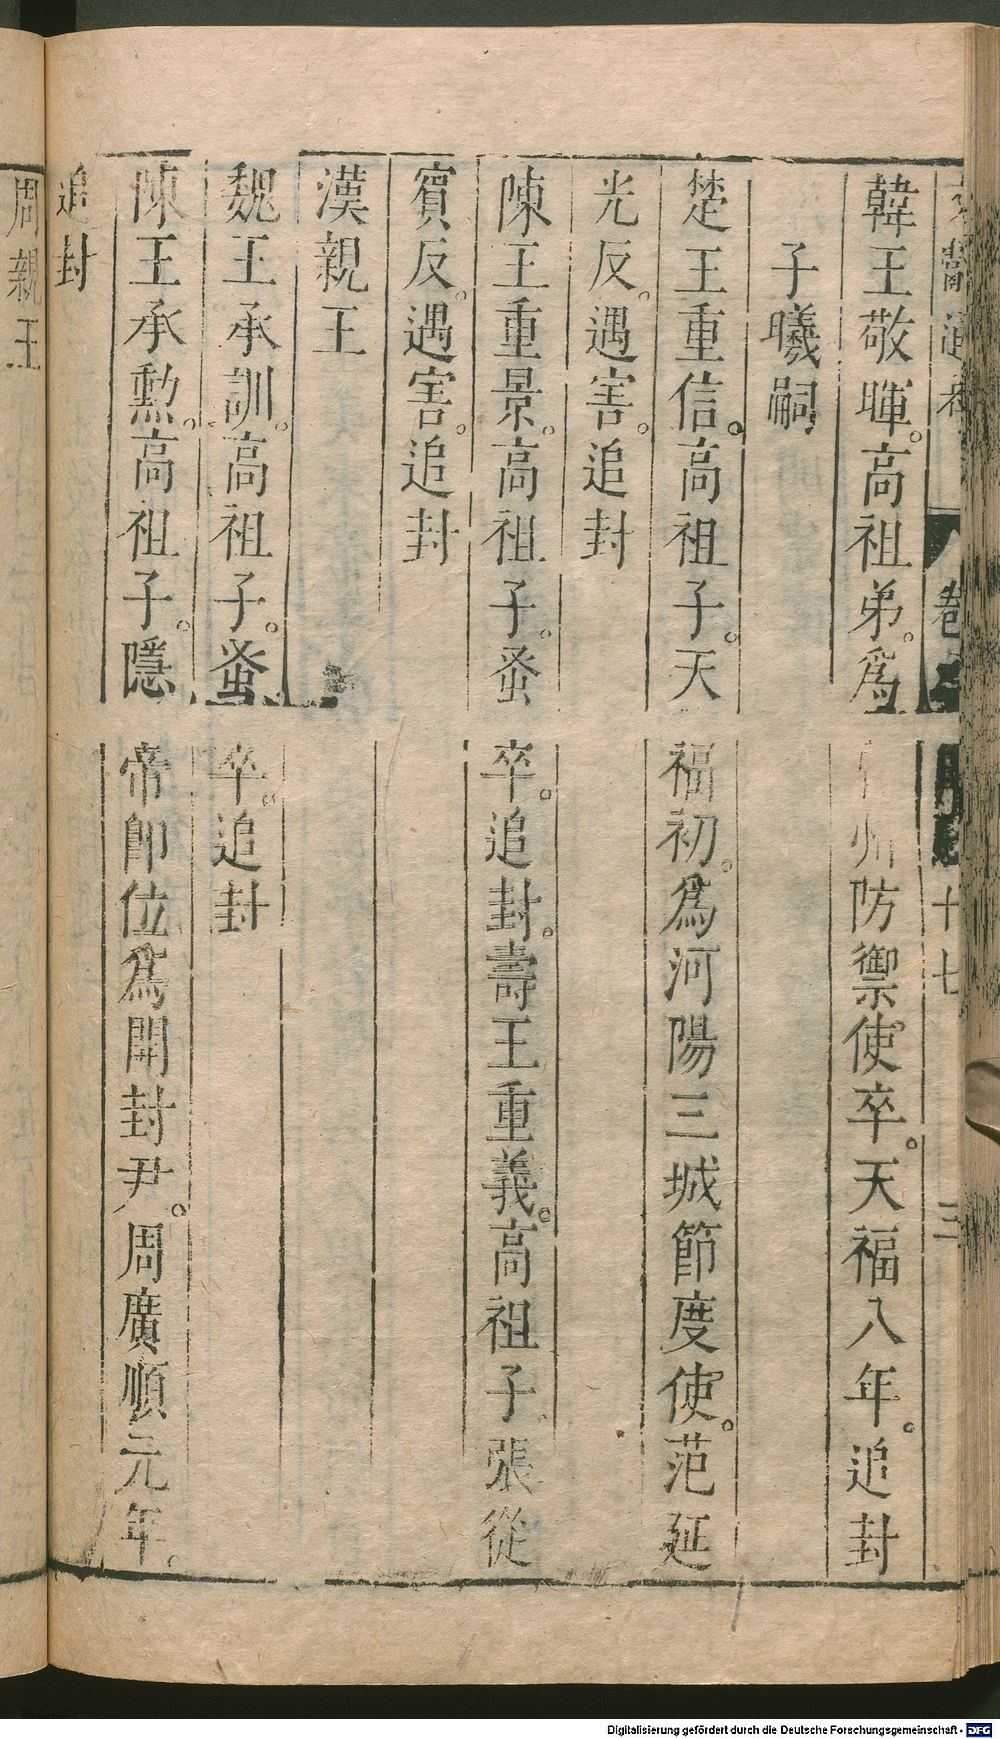 韓王敬暉。高祖弟。爲州防禦使卒。天福八年。追封
子曦嗣
楚王重信。高祖子。天福初。爲河陽三城節度使。范延
光反。遇害。追封
陳王重景。高祖子。蚤卒。追封。壽王重義。高祖子。張從
賓反。遇害。追封
漢親王
魏王承訓。高祖子。蚤卒。追封
陳王承勲。高祖子。隱帝卽位爲開封尹。周廣順元年。
追封
周親王
卷
十七
三
Digitalisierung gefördert durch die Deutsche Forschungsgemeinschaft - DFG